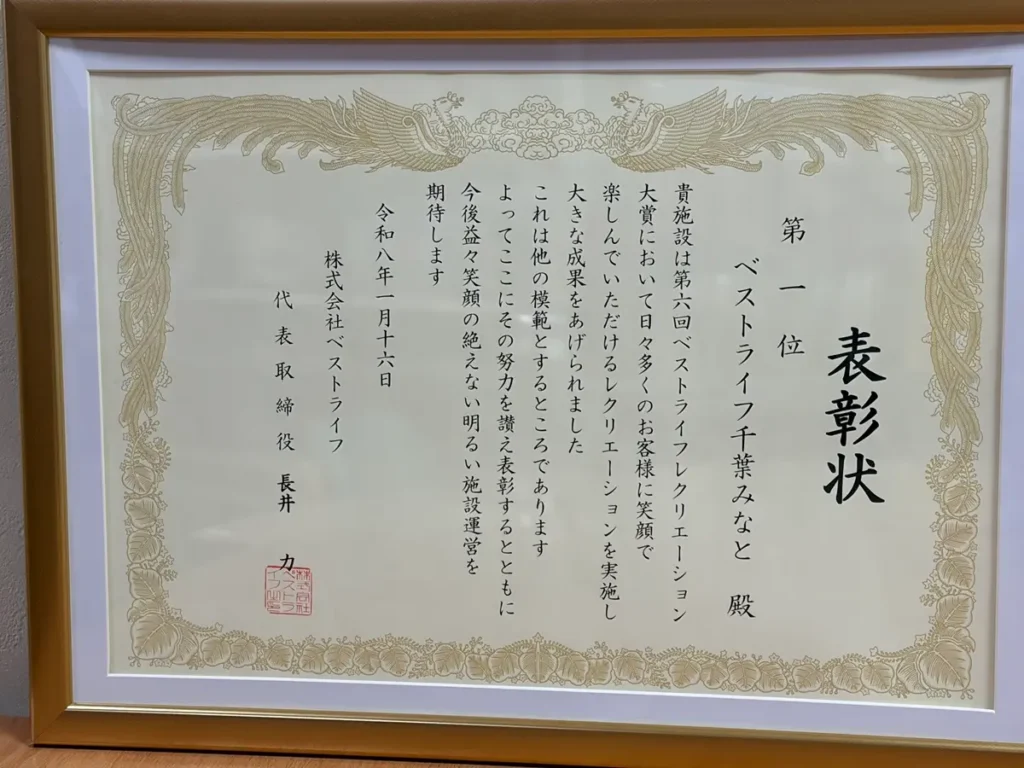 表彰状
第一位
ベストライフ千葉みなと 殿
貴施設は第六回ベストライフレクリエーション
大賞において日々多くのお客様に笑顔で
楽しんでいただけるレクリエーションを実施し
大きな成果をあげられました
これは他の模範とするところであります
よってここにその努力を讃え表彰するとともに
今後益々笑顔の絶えない明るい施設運営を
期待します
令和八年一月十六日
株式会社ベストライフ
代表取締役 長井 力